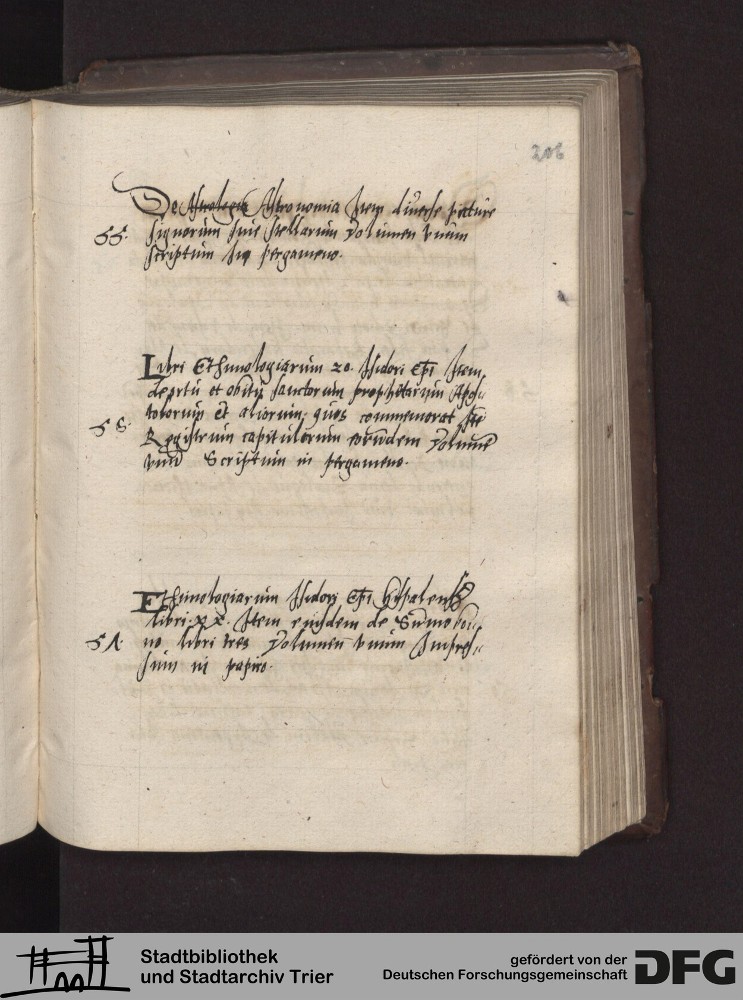 206
De Astrologia Astronomia Item diuerse picture
55. signorum siue stellarum Volumen vnum
scriptum in pergameno.
Libri Ethimologiarum 20. Isidori Epi Item
de ortu et obitu sanctorum prophetarum Apos
tolorum et aliorum quos commemorat
58. Registrum capitulorum eorundem Volumen
vnum Scriptum in pergameno.
Ethimologiarum Isidori Epi Hispalensis
libri XX. Item eiusdem de Summo bo
51. no libri tres Volumen vnum Impres
sum in papiro.
Stadtbibliothek
und Stadtarchiv Trier
gefördert von der
Deutschen Forschungsgemeinschaft
DFG